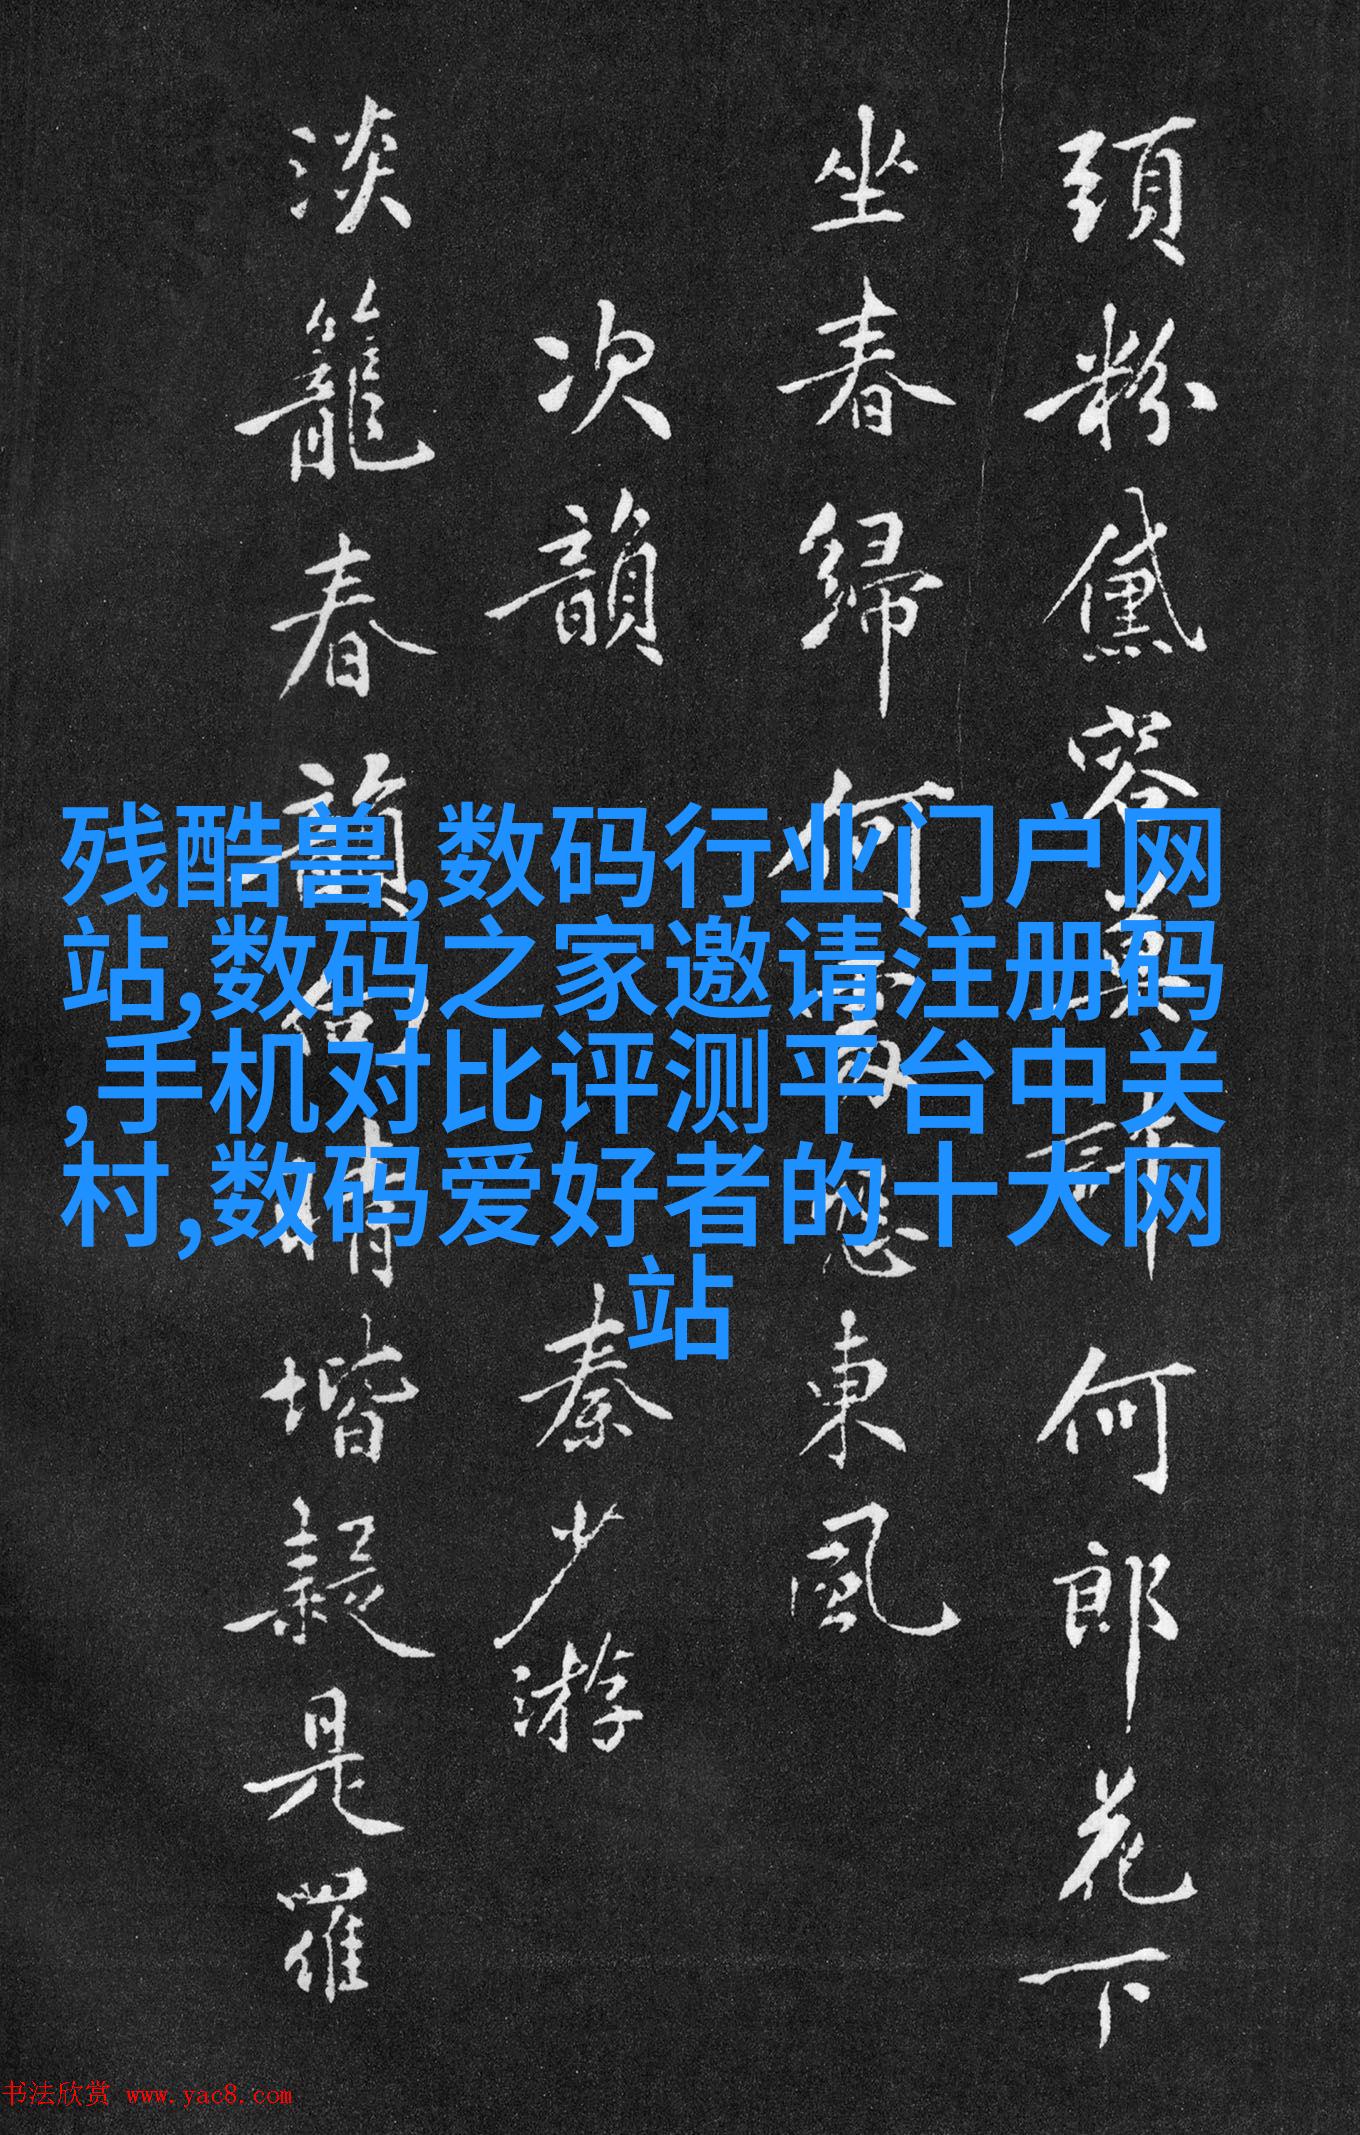 頭粉黛容莫訴何郎花下
坐春歸何處怨東風
次韻
秦少游
淡籠春韻向晴堦疑是羅
残酷兽,数码行业门户网
站,数码之家邀请注册码
,手机对比评测平台中关
村,数码爱好者的十大网
站
书法欣赏 www.yac8.com